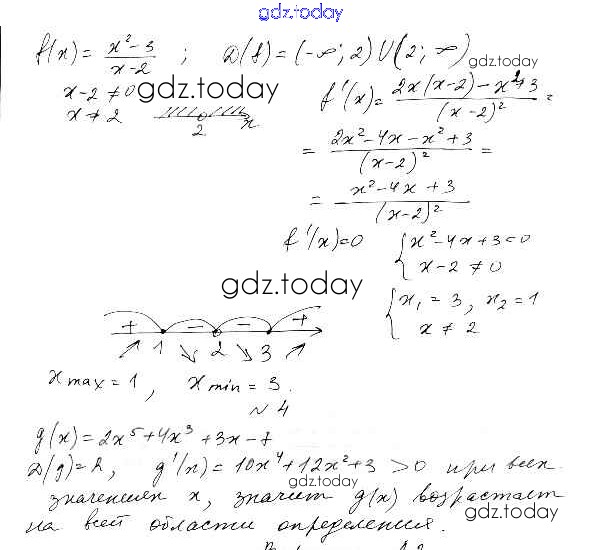 gdz.today
f(x) = x²-3 / x-2 ; D(f) = (-∞; 2) ∪ (2; ∞)
gdz.today
x-2 ≠ 0
gdz.today
f'(x) = 2x(x-2) - x²+3 / (x-2)² =
x ≠ 2
2
x
= 2x²-4x-x²+3 / (x-2)² =
= x²-4x+3 / (x-2)²
f'(x)=0 { x²-4x+3=0
x-2 ≠ 0
gdz.today
{ x₁ = 3, x₂ = 1
x ≠ 2
+ - - +
↗ 1 ↘ 2 ↘ 3 ↗
x max = 1, x min = 3.
№ 4
g(x) = 2x⁵+4x³+3x-7
D(g)=R, g'(x) = 10x⁴+12x²+3 > 0 при всех
gdz.today
значениях x, значит g(x) возрастает
gdz.today
на всей области определения.